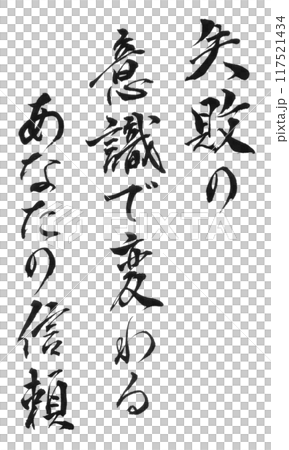 失敗の
意識で変わる
あなたの信頼
PIXTA
117521434